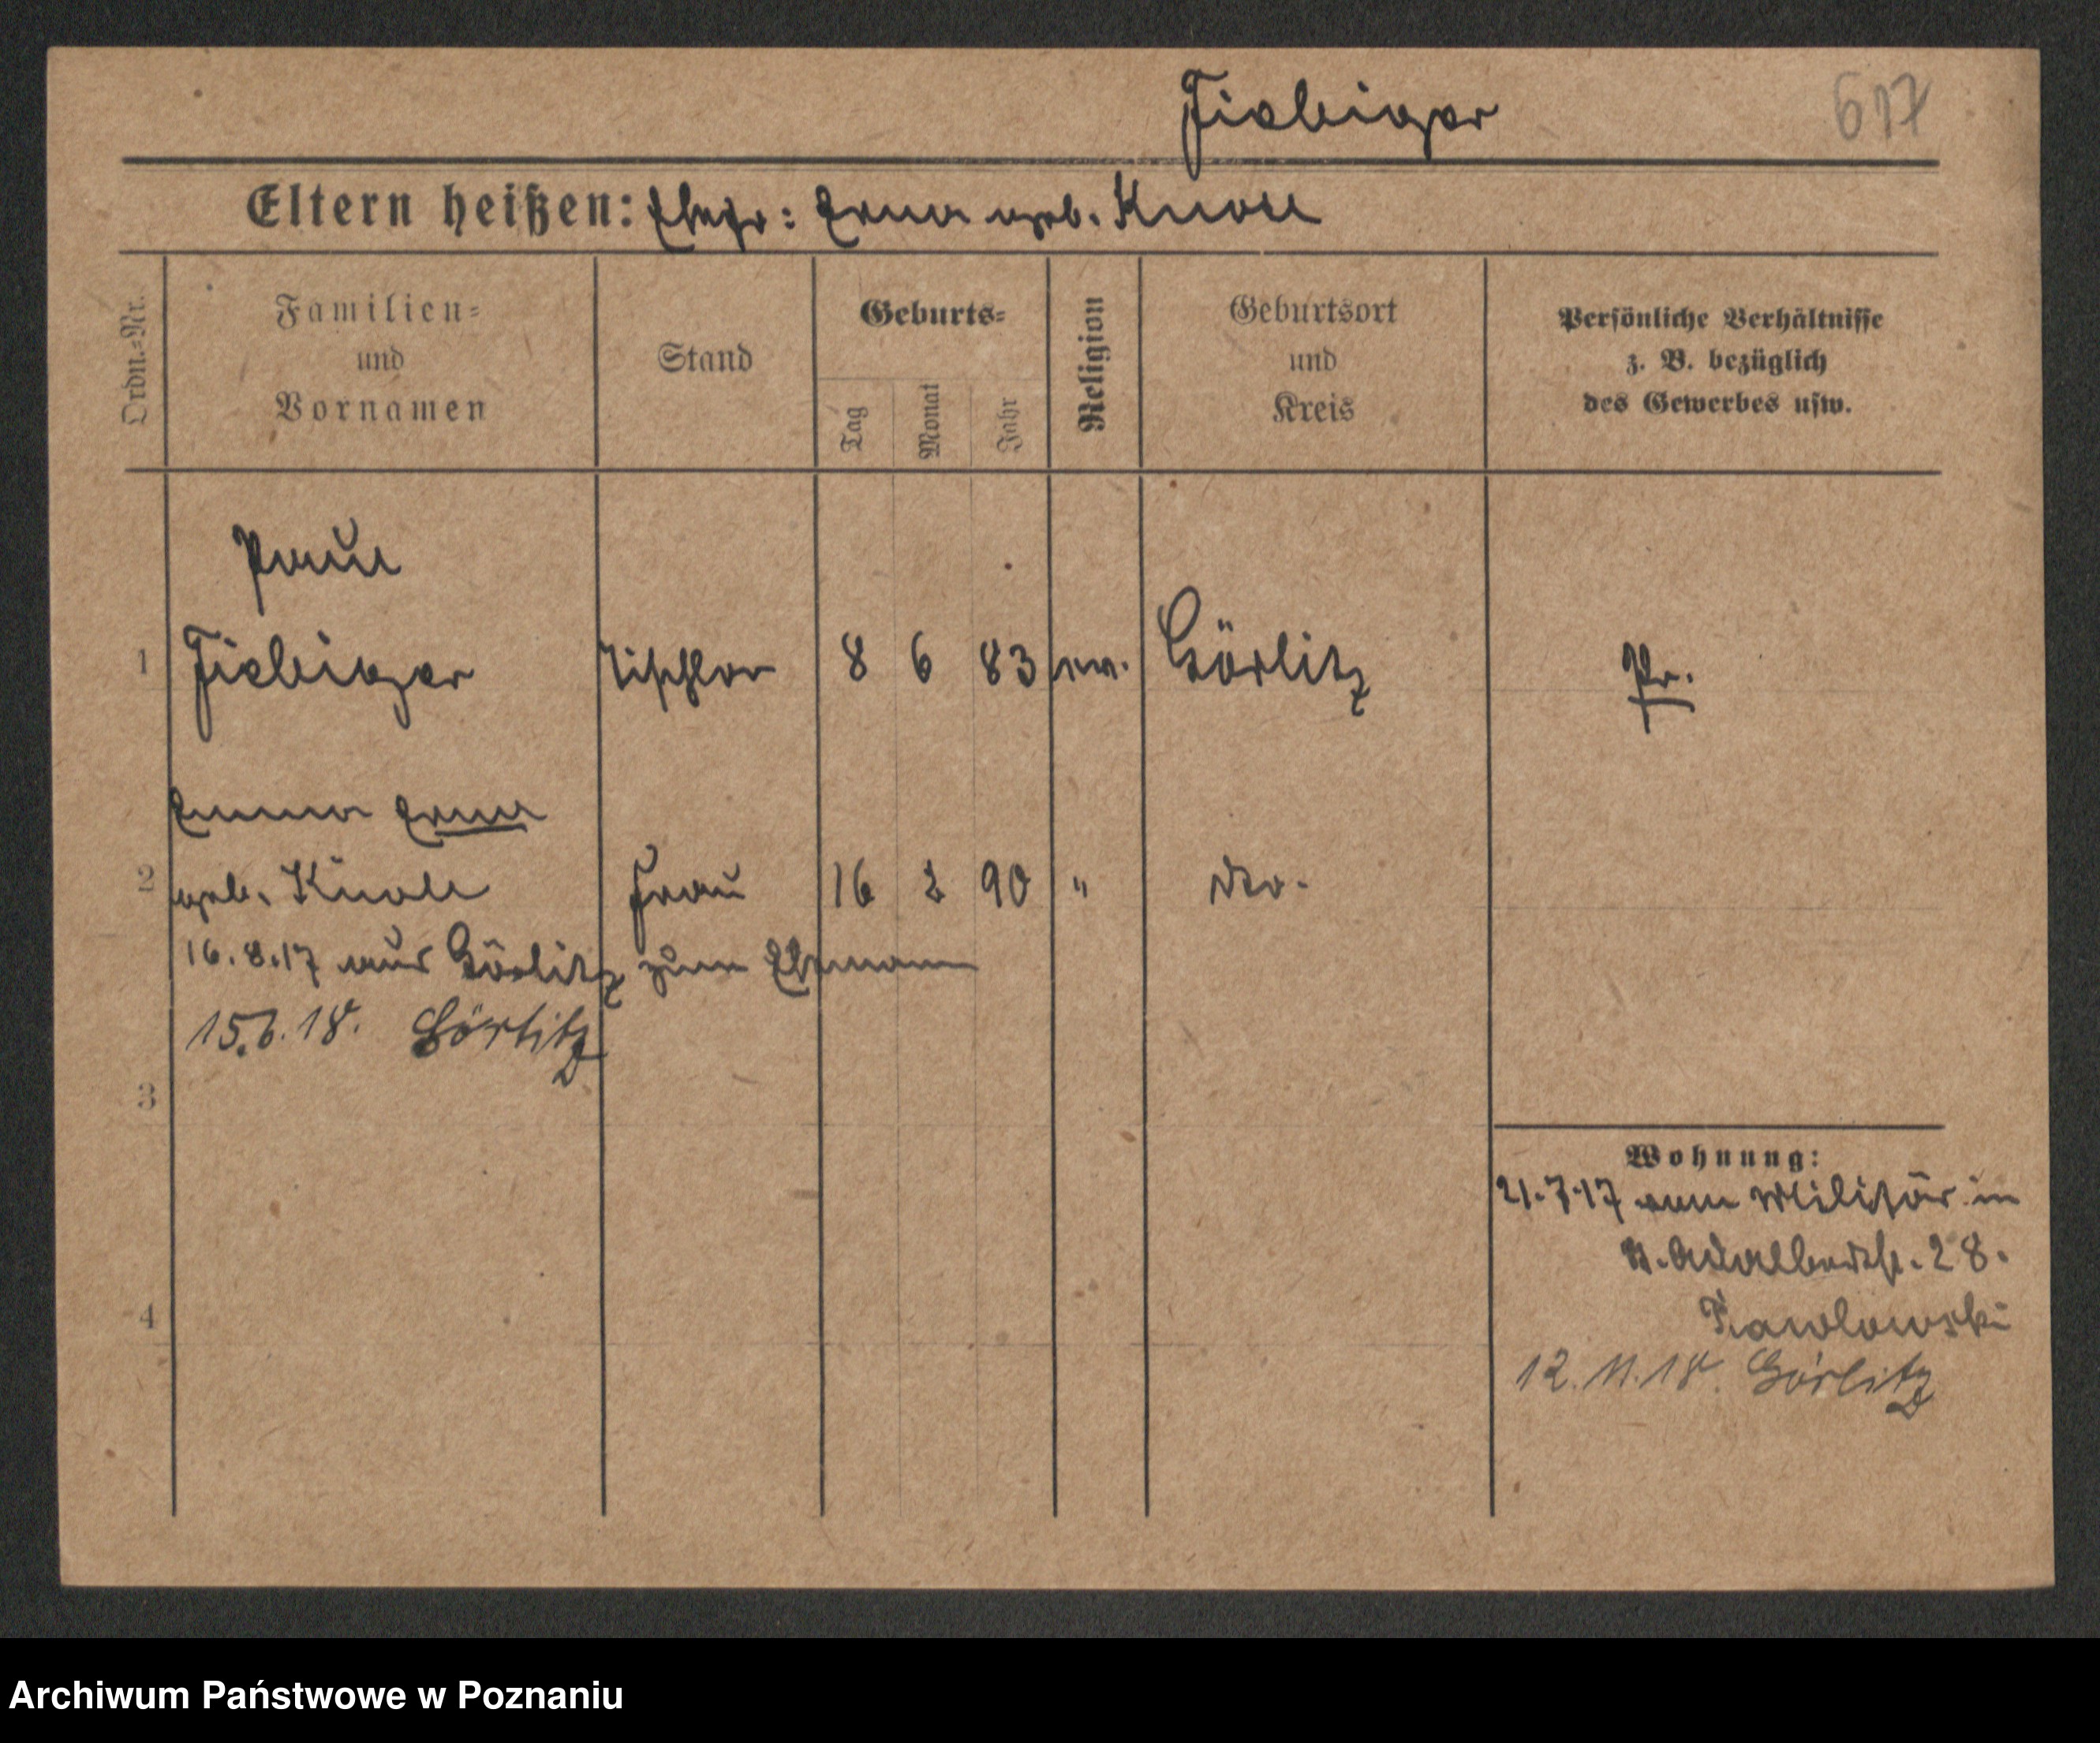 Fiebiger 617
Eltern heißen: Ehefr: Erna geb. Knoll
Ordn.-Nr. Familien- und Vornamen Stand Geburts- Tag Monat Jahr Religion Geburtsort und Kreis Persönliche Verhältnisse z. B. bezüglich des Gewerbes usw.
Paul
1 Fiebiger Tischler 8 6 83 ev. Görlitz Pr.
Emma Erna
2 geb. Knoll Frau 16 2 90 " dto.
16.8.17 aus Görlitz zum Ehemann
15.6.18. Görlitz
3
Wohnung:
21.7.17 vom Militär in
St. Adalbertstr. 28.
4 Pawlowski
12.11.18. Görlitz
Archiwum Państwowe w Poznaniu